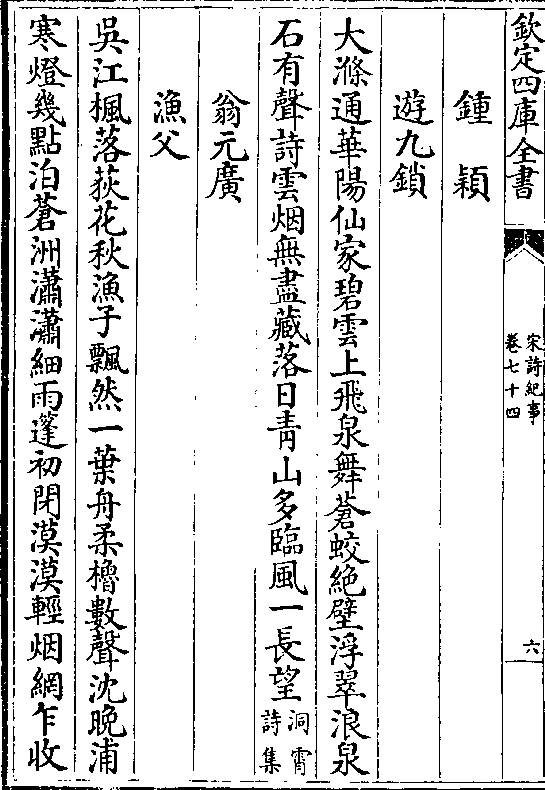 欽定四庫全書
宋詩紀事
卷七十四
六
鍾穎
遊九鎖
大滌通華陽仙家碧雲上飛泉舞蒼蛟絶壁浮翠浪泉
石有聲詩雲烟無盡藏落日青山多臨風一長望
洞霄
詩集
翁元廣
漁父
吳江楓落荻花秋漁子飄然一葉舟柔櫓數聲沈晚浦
寒燈幾點泊蒼洲瀟瀟細雨蓬初閉漠漠輕烟網乍收